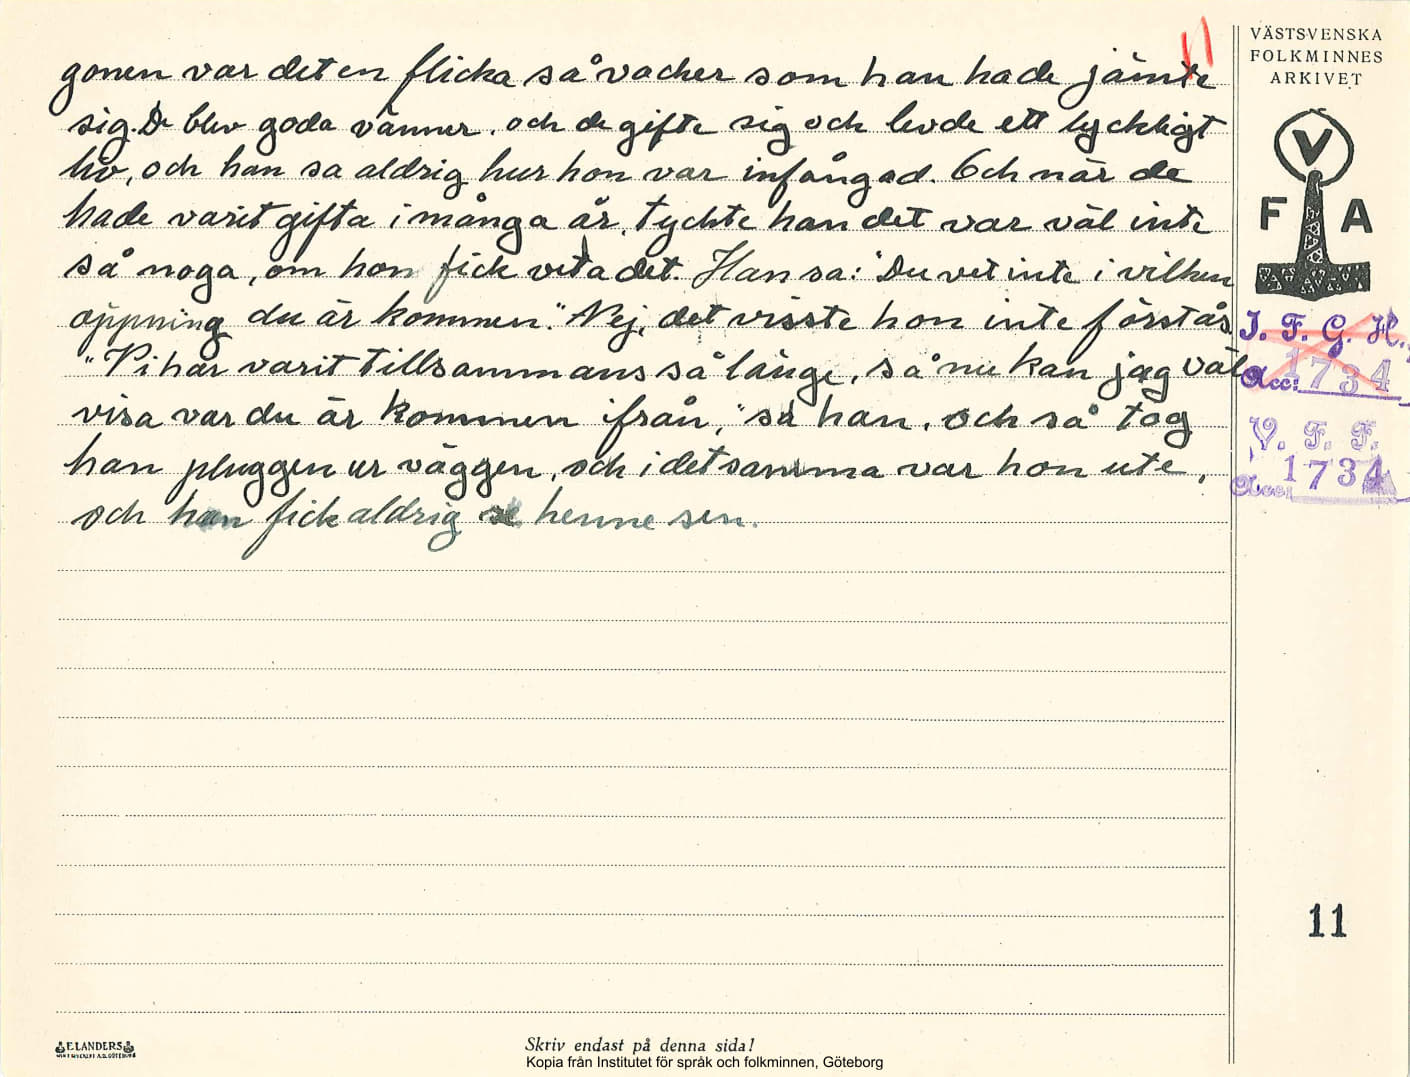 gonen var det en flicka så vacker som han hade jämte
sig. De blev goda vänner, och de gifte sig och levde ett lyckligt
liv, och han sa aldrig hur hon var infångad. Och när de
hade varit gifta i många år, tyckte han det var väl inte
så noga, om hon fick veta det. Han sa: "Du vet inte i vilken
öppning du är kommen." Nej, det visste hon inte förstås.
"Vi har varit tillsammans så länge, så nu kan jag väl
visa var du är kommen ifrån," sa han, och så tog
han pluggen ur väggen, och i detsamma var hon ute,
och han fick aldrig se henne sen.
VÄSTSVENSKA
FOLKMINNES
ARKIVET
V
F A
I. F. G. H.
Acc: 1734
V. F. F.
Acc: 1734
11
ELANDERS
Skriv endast på denna sida!
Kopia från Institutet för språk och folkminnen, Göteborg